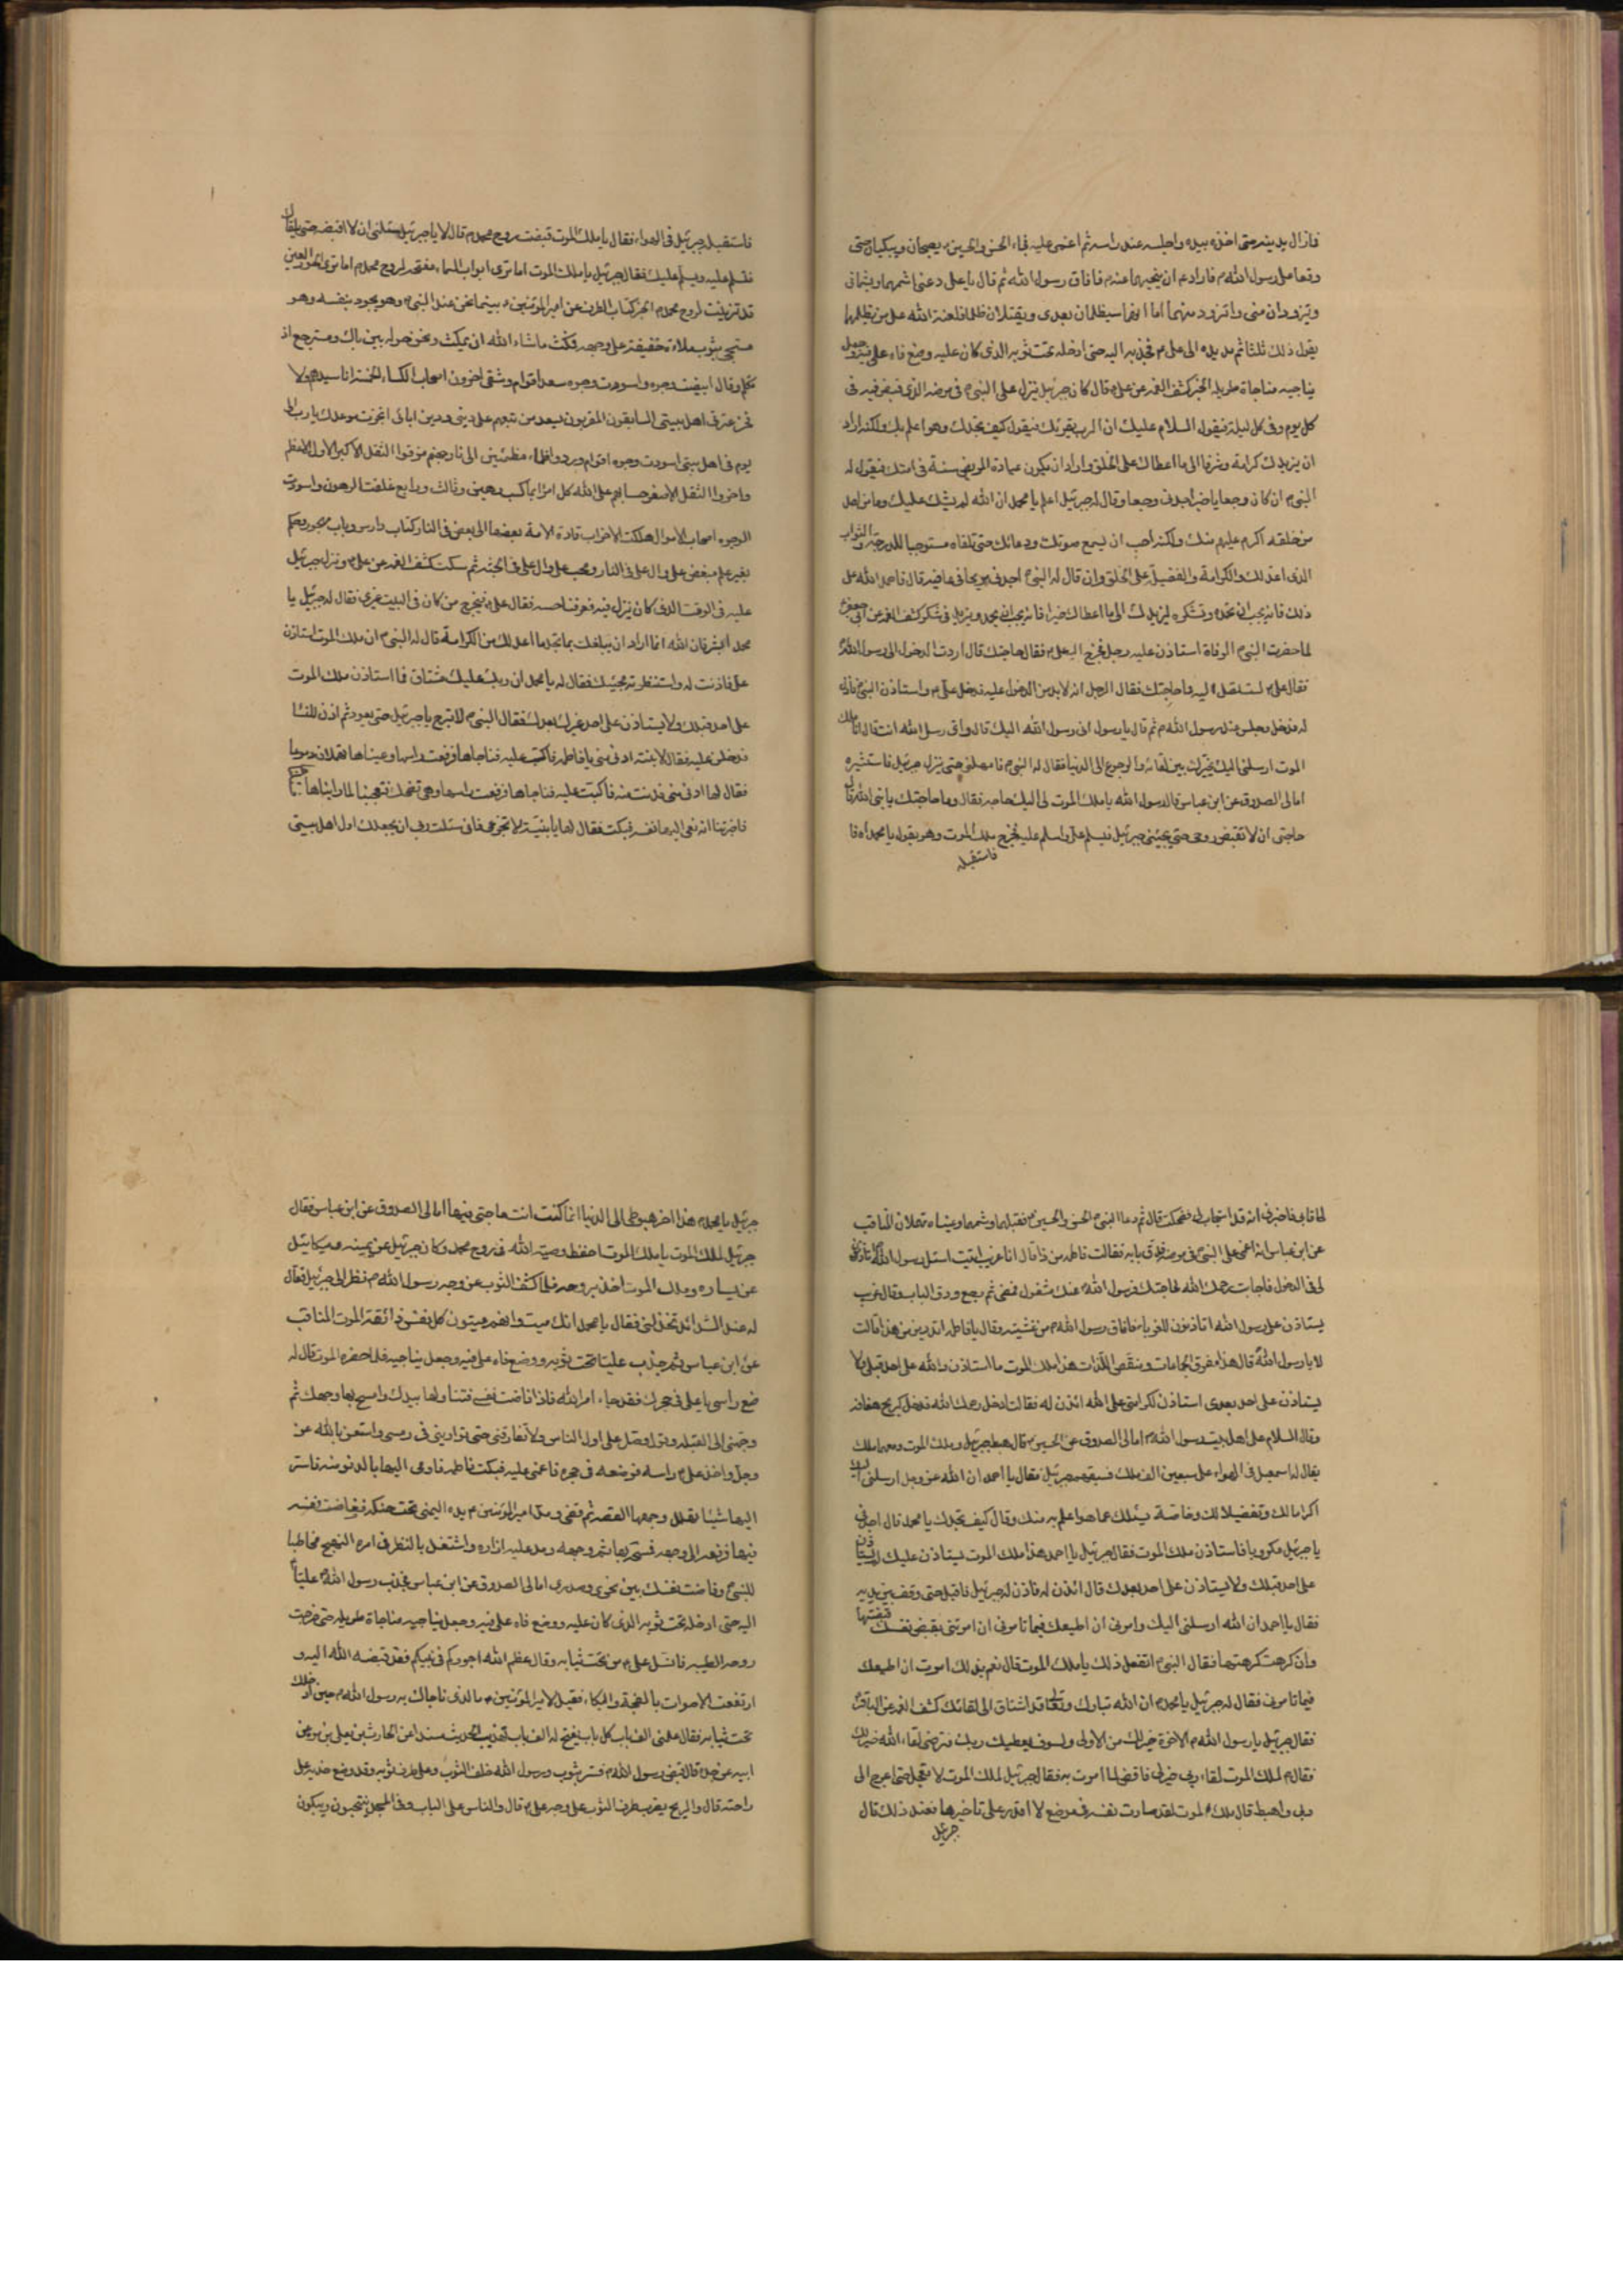 فازال يدينه حتى اخذه بيده واجلسه عند راسه ثم اغمى عليه فجاء الحسن والحسين يصيحان ويبكيان حتى
وقعا على رسول الله م فاراد ع ان ينحيهما عنه فافاق رسول الله ثم قال يا على دعنى اشمهما ويشمانى
ويتزودان منى واتزود منهما اما انهما سيظلمان بعدى ويقتلان ظلما فلعنة الله على من يظلمهما
يقول ذلك ثلثا ثم مد يده الى على م فجذبه اليه حتى ادخله تحت ثوبه الذى كان عليه وضع فاه على فيه وجعل
يناجيه مناجاة طويلة الخبر كشف الغمه عن على قال كان جبرئيل ينزل على النبى م فى مرضه الذى قبض فيه فى
كل يوم وفى كل ليلة فيقول السلام عليك ان الرب يقرئك فيقول كيف تجدك وهو اعلم بك ولكنه اراد
ان يزيدك كرامة وشرفا الى ما اعطاك على الخلق واراد ان يكون عيادة المريض سنة فى امتك فيقول له
النبى م ان كان وجعا يا جبرئيل اجدنى وجعا وقال له جبرئيل اعلم يا محمد ان الله لم يشدد عليك وما من احد
من خلقه اكرم عليه منك ولكنه احب ان يسمع صوتك ودعائك حتى تلقاه مستوجبا للدرجة والثواب
الذى اعد لك والكرامة والفضيلة على الخلق وان قال له النبى م اجدنى مريحا فى عافية قال فاحمد الله على
ذلك فانه يحب ان تحمده وتشكره ليزيدك الى ما اعطاك خيرا فانه يحب ان يحمد ويزيد من شكر كشف الغمه عن ابى جعفر
لما حضرت النبى م الوفاة استاذن عليه رجل فخرج اليه على م فقال حاجتك قال اردت الدخول الى رسول الله
فقال على م لست تصل اليه وما حاجتك فقال الرجل انه لا بد من الدخول عليه فدخل على م واستاذن النبى فاذن
له فدخل وجلس عند رسول الله م ثم قال يا رسول الله انى رسول الله اليك قال واى رسل الله انت قال انا ملك
الموت ارسلنى اليك يخيرك بين لقائه والرجوع الى الدنيا فقال له النبى م فامهلنى حتى ينزل جبرئيل فاستشيره
امالى الصدوق عن ابن عباس قال رسول الله يا ملك الموت لى اليك حاجه فقال وما حاجتك يا نبى الله قال
حاجتى ان لا تقبض روحى حتى يجيئنى جبرئيل فيسلم على واسلم عليه فخرج ملك الموت وهو يقول يا محمداه فا
فاستقبله
فاستقبله جبرئيل فى الهواء فقال يا ملك الموت قبضت روح محمد م قال لا يا جبرئيل سئلنى ان لا اقبضه حتى يلقاك
فتسلم عليه ويسلم عليك فقال جبرئيل يا ملك الموت اما ترى ابواب السماء مفتحه لروح محمد م اما ترى الحور العين
قد تزينت لروح محمد م الخبر كتاب الطرف عن امير المؤمنين م بينما نحن عند النبى م وهو يجود بنفسه وهو
مسجى بثوب ملاءة خفيفة على وجهه فمكث ما شاء الله ان يمكث ونحن حوله بين باك ومسترجع اذ
تكلم وقال ابيضت وجوه واسودت وجوه وسعد اقوام وشقى اخرون اصحاب الكساء الخمسة انا سيدهم ولا
فخر عترتى اهل بيتى السابقون المقربون يسعد من تبعهم على دينى ودين ابائى انجزت موعدك يا رب الى
يوم فى اهل بيتى اسودت وجوه اقوام وردوا ظماء مظمئين الى نار جهنم مزقوا الثقل الاكبر الاول الاعظم
واخروا الثقل الاصغر حسابهم على الله كل امرئ بما كسب رهين وثالث ورابع غلقت الرهون واسودت
الوجوه اصحاب الاموال هلكت الاحزاب قادة الامة بعضها الى بعض فى النار كتاب دارس وباب مهجور وحكم
بغير علم مبغض على وال على فى النار ومحب على وال على فى الجنة ثم سكت كشف الغمه عن على م ونزل جبرئيل
عليه فى الوقت الذى كان ينزل فيه فعرفنا حسه فقال على فيخرج من كان فى البيت غيرى فقال له جبرئيل يا
محمد ابشر فان الله انما اراد ان يبلغك بما تجد ما اعد لك من الكرامة قال له النبى م ان ملك الموت استاذن
على فاذنت له واستنظرته مجيئك فقال له يا محمد ان ربك عليك مشتاق فما استاذن ملك الموت
على احد قبلك ولا يستاذن على احد غيرك بعدك فقال النبى م لا تبرح يا جبرئيل حتى يعود ثم اذن للنساء
فدخلن عليه فقال لابنته ادنى منى يا فاطمة فاكبت عليه فناجاها فرفعت راسها وعيناها تهملان دموعا
فقال لها ادنى منى فدنت منه فاكبت عليه فناجاها فرفعت راسها وهى تضحك فتعجبنا لما راينا فسئلناها
فاخبرتنا انه نعى اليها نفسه فبكت فقال لها يا بنية لا تجزعى فانى سئلت ربى ان يجعلك اول اهل بيتى
لحاقا بى فاخبرنى انه قد استجاب لى فضحكت قال ثم دعا النبى م الحسن والحسين م فقبلهما وشمهما وعيناه تهملان المناقب
عن ابن عباس انه اغمى على النبى م فى مرضه فدق بابه فقالت فاطمه من ذا قال انا غريب اتيت اسئل رسول الله م اتاذنون
لى فى الدخول فاجابت رحمك الله لحاجتك فرسول الله م عنك مشغول فمضى ثم رجع ودق الباب وقال غريب
يستاذن على رسول الله اتاذنون للغرباء فافاق رسول الله م من غشيته وقال يا فاطمه اتدرين من هذا قالت
لا يا رسول الله قال هذا مفرق الجماعات ومنغص اللذات هذا ملك الموت ما استاذن والله على احد قبلى ولا
يستاذن على احد بعدى استاذن لكرامتى على الله ائذن له فقالت ادخل رحمك الله فدخل كريح هفافة
وقال السلام على اهل بيت رسول الله م امالى الصدوق عن الحسين م قال هبط جبرئيل وملك الموت ومعه ملك
يقال له اسمعيل فى الهواء على سبعين الف ملك فسبقهم جبرئيل فقال يا احمد ان الله عز وجل ارسلنى اليك
اكراما لك وتفضيلا لك وخاصة يسئلك عما هو اعلم به منك وقال كيف تجدك يا محمد قال اجدنى
يا جبرئيل مكروبا فاستاذن ملك الموت فقال جبرئيل يا احمد هذا ملك الموت يستاذن عليك لم يستاذن
على احد قبلك ولا يستاذن على احد بعدك قال ائذن له فاذن له جبرئيل فاقبل حتى وقف بين يديه
فقال يا احمد ان الله ارسلنى اليك وامرنى ان اطيعك فيما تامرنى ان امرتنى بقبض نفسك قبضتها
وان كرهت كرهتها فقال النبى م اتفعل ذلك يا ملك الموت قال نعم بذلك امرت ان اطيعك
فيما تامرنى فقال له جبرئيل يا محمد م ان الله تبارك وتعالى قد اشتاق الى لقائك كشف الغمه عن الباقر
فقال جبرئيل يا رسول الله م الاخرة خير لك من الاولى ولسوف يعطيك ربك فترضى لقاء الله خير لك
فقال م لملك الموت لقاء ربى خير لى فاقض لما امرت به فقال جبرئيل لملك الموت لا تعجل حتى اعرج الى
ربى واهبط قال ملك الموت لقد صارت نفسه فى موضع لا اقدر على تاخيرها فعند ذلك قال
جبرئيل
جبرئيل يا محمد م هذا اخر هبوطى الى الدنيا انما كنت انت حاجتى فيها امالى الصدوق عن ابن عباس فقال
جبرئيل لملك الموت يا ملك الموت احفظ وصية الله فى روح محمد وكان جبرئيل عن يمينه وميكائيل
عن يساره وملك الموت اخذ بروحه فلما كشف الثوب عن وجه رسول الله م نظر الى جبرئيل فقال
له عند الشدائد تخذلنى فقال يا محمد انك ميت وانهم ميتون كل نفس ذائقة الموت المناقب
عن ابن عباس ثم جذب عليا تحت ثوبه ووضع فاه على فيه وجعل يناجيه فلما حضره الموت قال له
ضع راسى يا على فى حجرك فقد جاء امر الله فاذا فاضت نفسى فتناولها بيدك وامسح بها وجهك ثم
وجهنى الى القبله وتول امرى وصل على اول الناس ولا تفارقنى حتى توارينى فى رمسى واستعن بالله عز
وجل واخذ على م راسه فوضعه فى حجره فاغمى عليه فبكت فاطمه فاومى اليها بالدنو منه فاسر
اليها شيئا تهلل وجهها القصه ثم قضى ومد امير المؤمنين م يده اليمنى تحت حنكه ففاضت نفسه
فيها فرفعها الى وجهه فمسحه بها ثم وجهه ومد عليه ازاره واشتغل بالنظر فى امره النهج مخاطبا
للنبى م وفاضت نفسك بين نحرى وصدرى امالى الصدوق عن ابن عباس فجذب رسول الله م عليا
اليه حتى ادخله تحت ثوبه الذى كان عليه ووضع فاه على فيه وجعل يناجيه مناجاة طويله حتى خرجت
روحه الطيبه فانسل على م من تحت ثيابه وقال عظم الله اجوركم فى نبيكم فقد قبضه الله اليه و
ارتفعت الاصوات بالضجة والبكاء فقيل لامير المؤمنين م ما الذى ناجاك به رسول الله م حين ادخلك
تحت ثيابه فقال علمنى الف باب كل باب يفتح له الف باب تهذيب الحديث مسندا عن الحارث بن يعلى بن مره عن
ابيه عن جده قال قبض رسول الله م فستر بثوب ورسول الله خلف الثوب وعلى عند طرف ثوبه وقد وضع خديه على
راحته قال والريح يضرب طرف الثوب على وجه على م قال والناس على الباب وفى المسجد ينتحبون ويبكون